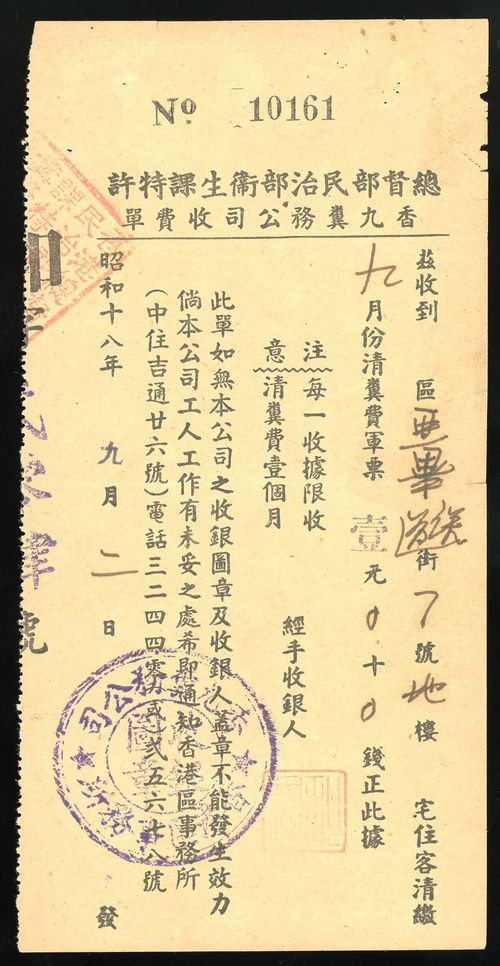 Nº 10161
總督部民治部衛生課特許
香九糞務公司收費單
茲收到 區 街 7 號地樓 宅住客清繳
九月份清糞費軍票 壹元0十0錢正此據
注意 每一收據限收
清糞費壹個月
經手收銀人
此單如無本公司之收銀圖章及收銀人蓋章不能發生效力
倘本公司工人工作有未妥之處希即通知香港區事務所
(中住吉通廿六號)電話三二四四零或式五六七八號
昭和十八年 九月 二日 發